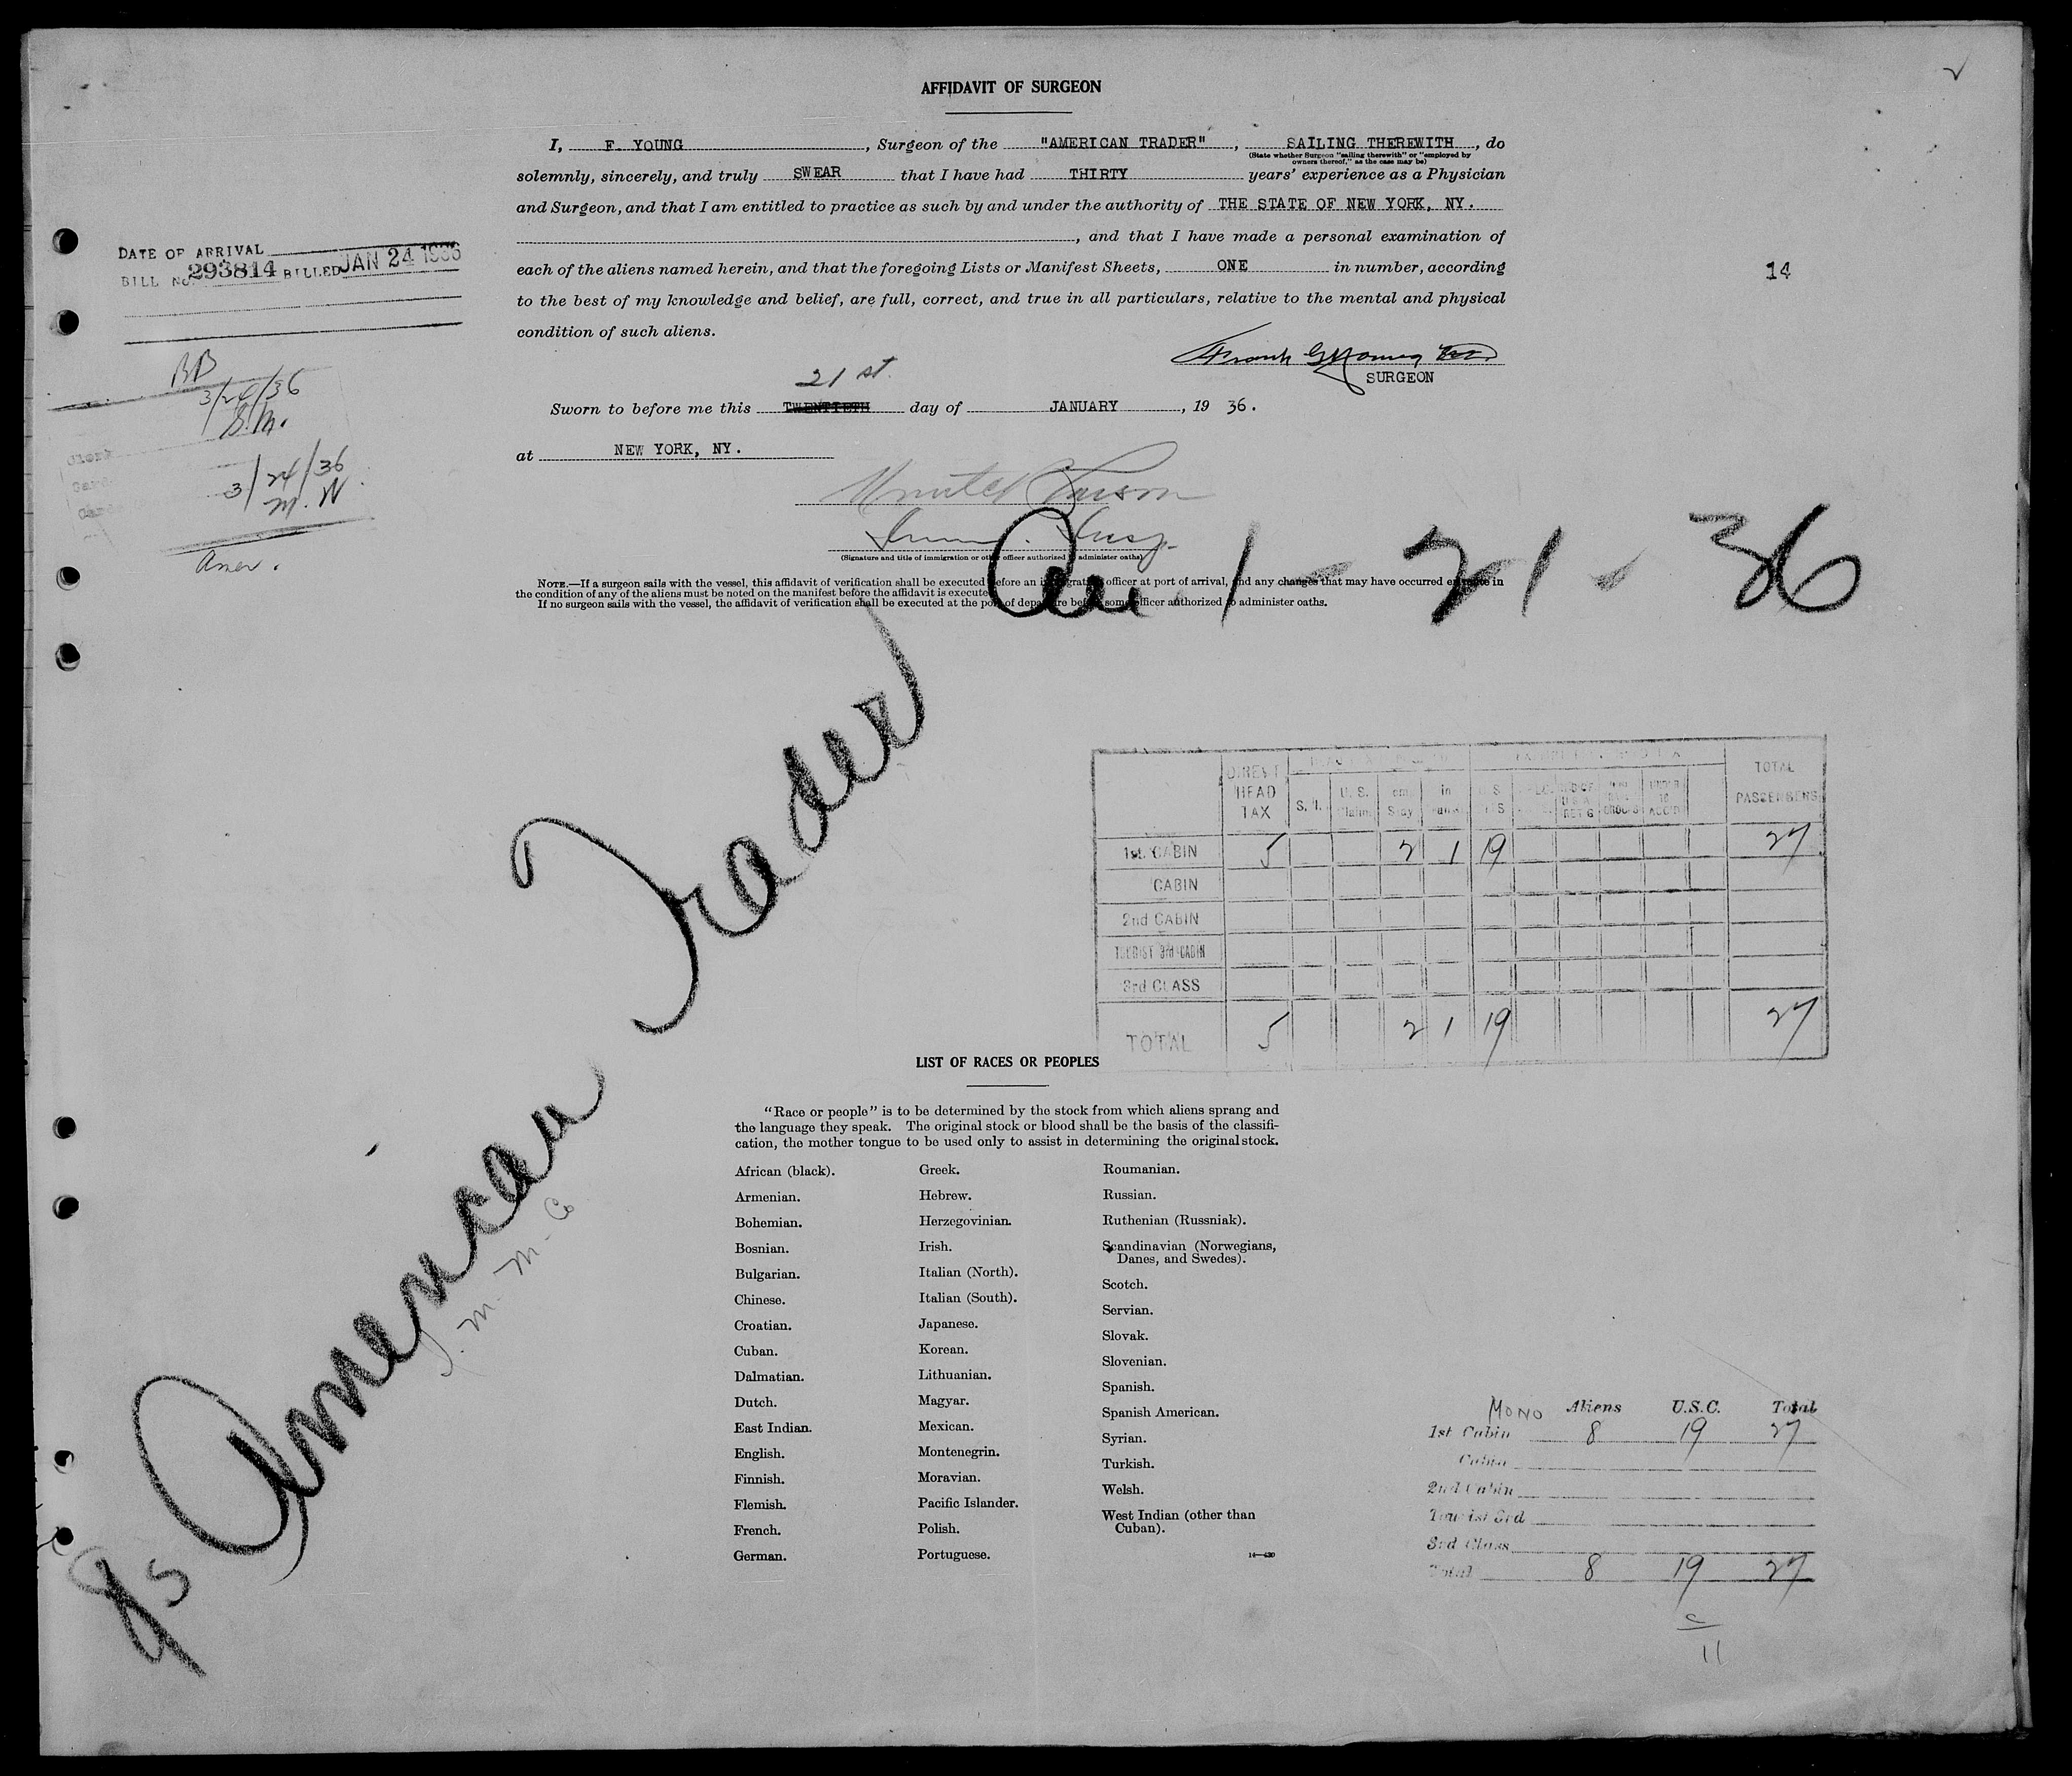 AFFIDAVIT OF SURGEON
I, F. YOUNG, Surgeon of the "AMERICAN TRADER", SAILING THEREWITH, do
(State whether Surgeon "sailing therewith" or "employed by
owners thereof," as the case may be)
solemnly, sincerely, and truly SWEAR that I have had THIRTY years' experience as a Physician
and Surgeon, and that I am entitled to practice as such by and under the authority of THE STATE OF NEW YORK, NY.
, and that I have made a personal examination of
each of the aliens named herein, and that the foregoing Lists or Manifest Sheets, ONE in number, according
to the best of my knowledge and belief, are full, correct, and true in all particulars, relative to the mental and physical
condition of such aliens.
DATE OF ARRIVAL
BILL No. 293814 BILLED JAN 24 1936
14
BB
3/24/36
S.M.
3/24/36
M.N
Amer.
Frank G Young
SURGEON
21 st
Sworn to before me this TWENTIETH day of JANUARY, 19 36.
at NEW YORK, NY.
Imm. Insp.
(Signature and title of immigration or other officer authorized to administer oaths)
NOTE.—If a surgeon sails with the vessel, this affidavit of verification shall be executed before an immigration officer at port of arrival, and any changes that may have occurred en route in
the condition of any of the aliens must be noted on the manifest before the affidavit is executed.
If no surgeon sails with the vessel, the affidavit of verification shall be executed at the port of departure before some officer authorized to administer oaths.
Arr. 1-21-36
SS American Trader
I. M. M. Co
DIRECT HEAD TAX S.I. U.S. TOTAL PASSENGERS
1st CABIN 5 2 1 19 27
CABIN
2nd CABIN
TOURIST 3rd CABIN
3rd CLASS
TOTAL 5 2 1 19 27
LIST OF RACES OR PEOPLES
"Race or people" is to be determined by the stock from which aliens sprang and
the language they speak. The original stock or blood shall be the basis of the classifi-
cation, the mother tongue to be used only to assist in determining the original stock.
African (black).
Armenian.
Bohemian.
Bosnian.
Bulgarian.
Chinese.
Croatian.
Cuban.
Dalmatian.
Dutch.
East Indian.
English.
Finnish.
Flemish.
French.
German.
Greek.
Hebrew.
Herzegovinian.
Irish.
Italian (North).
Italian (South).
Japanese.
Korean.
Lithuanian.
Magyar.
Mexican.
Montenegrin.
Moravian.
Pacific Islander.
Polish.
Portuguese.
Roumanian.
Russian.
Ruthenian (Russniak).
Scandinavian (Norwegians,
Danes, and Swedes).
Scotch.
Servian.
Slovak.
Slovenian.
Spanish.
Spanish American.
Syrian.
Turkish.
Welsh.
West Indian (other than
Cuban).
14—430
MONO Aliens U.S.C. Total
1st Cabin 8 19 27
Cabin
2nd Cabin
Tourist 3rd
3rd Class
Total 8 19 27
c
11